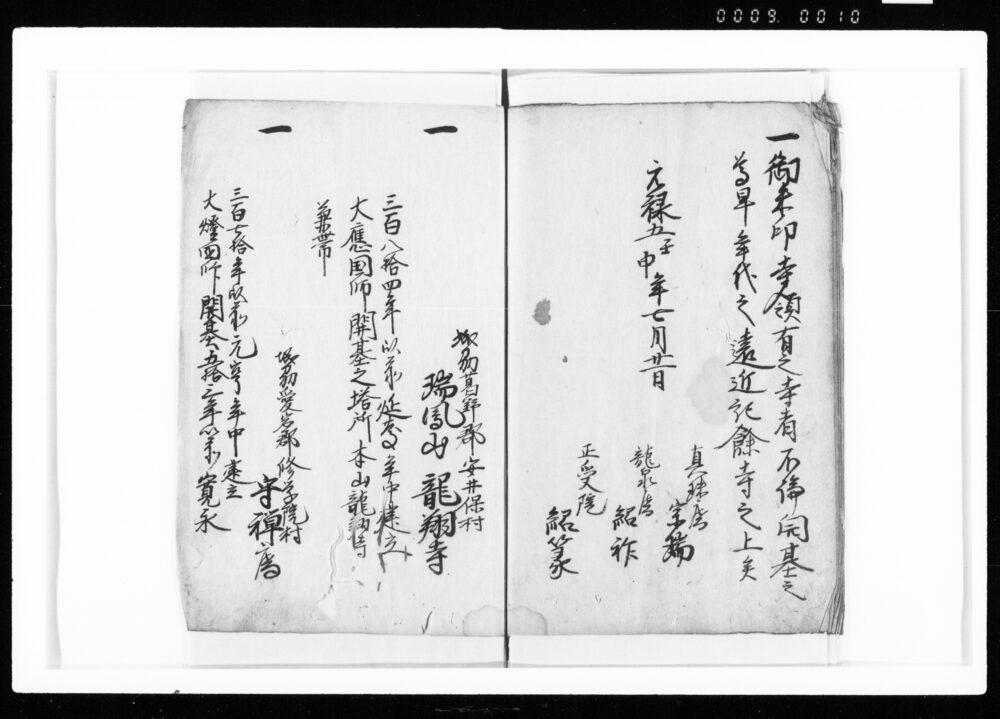 0009. 0010
一 御朱印寺領有之寺者不倫開基之
年代之遠近記餘寺之上矣
元禄五壬申年七月廿一日
真珠庵
宗瑞
龍泉庵
紹祚
正受院
紹篆
城州葛野郡安井保村
一 瑞鳳山 龍翔寺
三百八拾四年以前延慶年中建立
大應国師開基之塔所本山龍翔寺
兼帯
城州愛宕郡修学院村
一 守禅庵
三百七拾年以前元亨年中建立
大燈国師開基五拾三年以前寛永